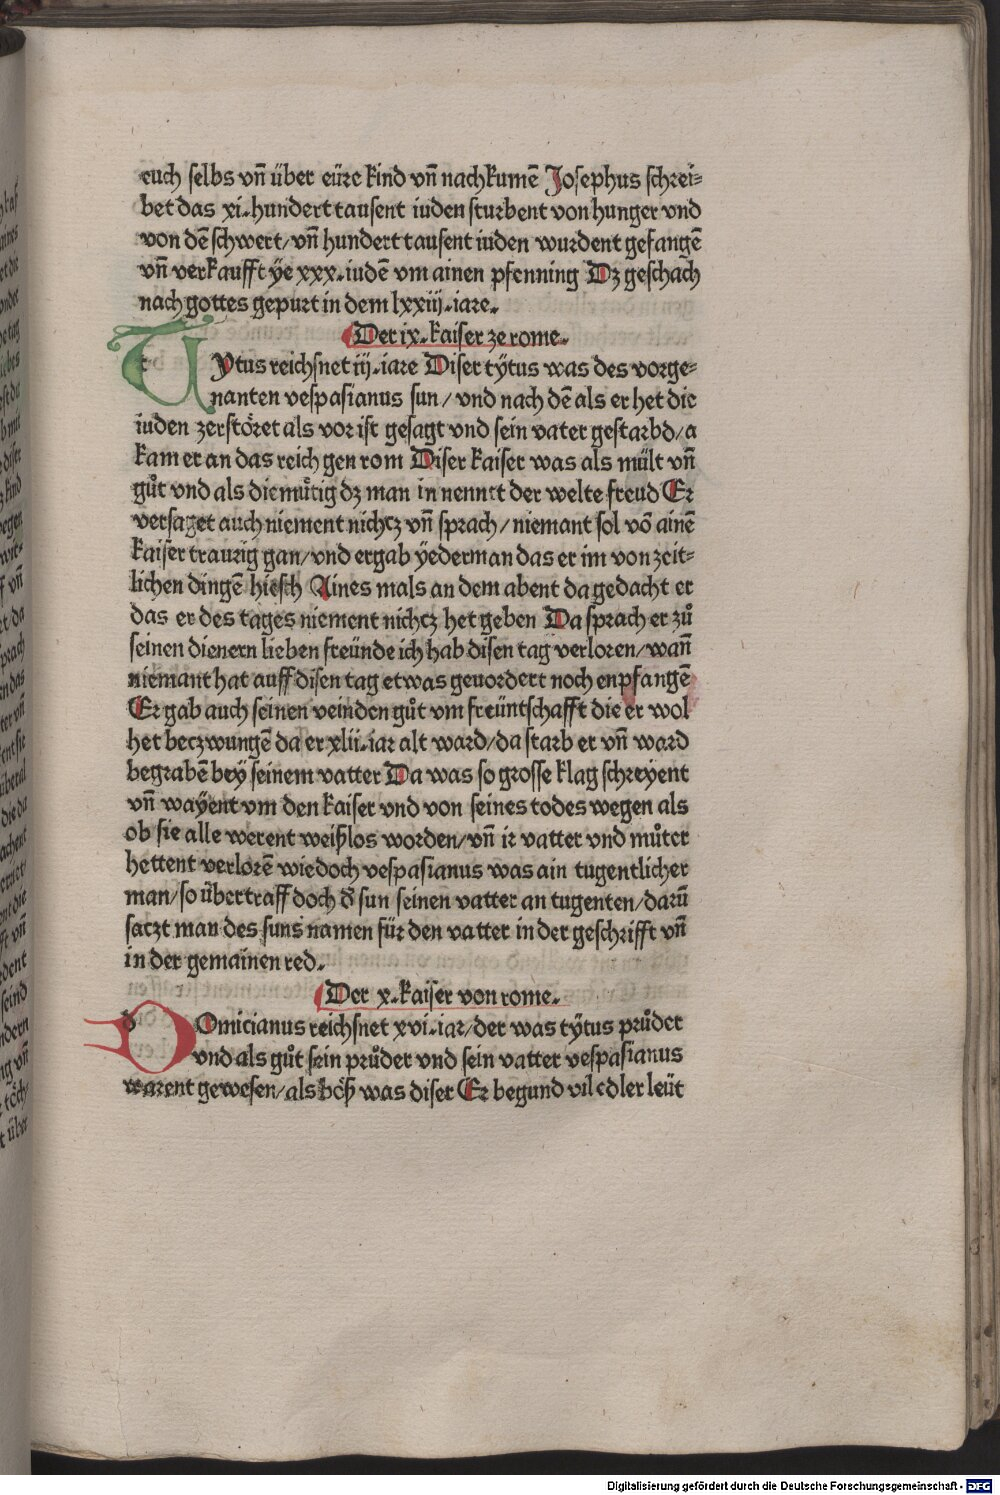 euch selbs vñ über eüre kind vñ nachkumē Josephus schrei⸗
bet das xi.hundert tausent iuden sturbent von hunger vnd
von dē schwert/vñ hundert tausent iuden wurdent gefangē
vñ verkaufft ÿe xxx.iudē vm ainen pfenning Dz geschach
nach gottes gepurt in dem lxxiij.iare.
Der ix.kaiser ze rome.
TYtus reichsnet iij.iare Diser tÿtus was des vorge⸗
nanten vespasianus sun/vnd nach dē als er het die
iuden zerstöret als vor ist gesagt vnd sein vater gestarbd/a
kam er an das reich gen rom Diser kaiser was als mült vñ
gůt vnd als diemůtig dz man in nennet der welte freud Er
versaget auch niement nichcz vñ sprach/niemant sol võ ainē
kaiser traurig gan/vnd ergab ÿederman das er im von zeit⸗
lichen dingē hiesch Aines mals an dem abent da gedacht er
das er des tages niement nichcz het geben Da sprach er zů
seinen dienern lieben freünde ich hab disen tag verloren/wañ
niemant hat auff disen tag etwas geuordert noch enpfangē
Er gab auch seinen veinden gůt vm freüntschafft die er wol
het beczwungē da er xlii.iar alt ward/da starb er vñ ward
begrabē bey seinem vatter Da was so grosse klag schreyent
vñ wayent vm den kaiser vnd von seines todes wegen als
ob sie alle werent weißlos worden/vñ ir vatter vnd můter
hettent verlorē wiedoch vespasianus was ain tugentlicher
man/so übertraff doch d̄ sun seinen vatter an tugenten/darū
saczt man des suns namen für den vatter in der geschrifft vñ
in der gemainen red.
Der x.kaiser von rome.
DOmicianus reichsnet xvi.iar/der was tÿtus průder
vnd als gůt sein průder vnd sein vatter vespasianus
warent gewesen/als böß was diser Er begund vil edler leüt
Digitalisierung gefördert durch die Deutsche Forschungsgemeinschaft - DFG